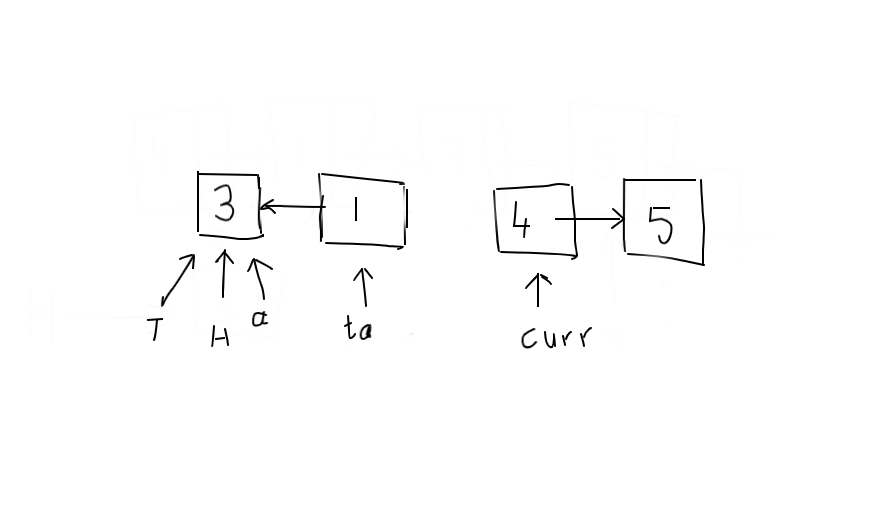 3 1 4 5
T H a ta curr